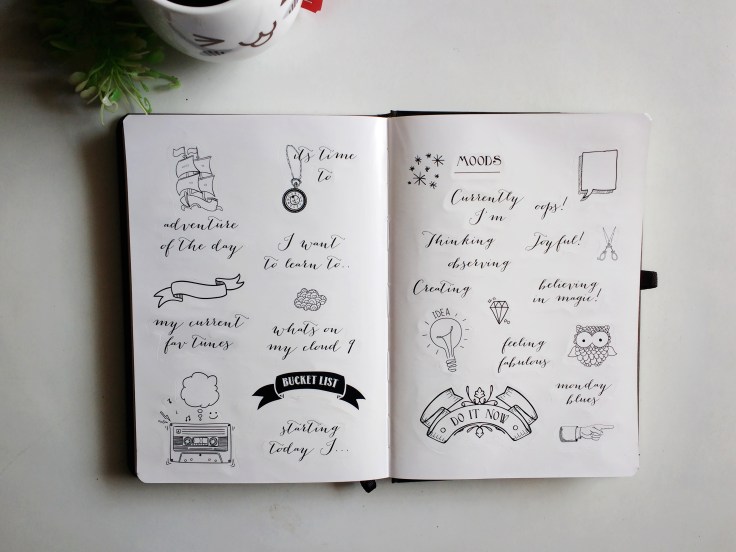 it's time
to
adventure
of the day
I want
to learn to..
my current
fav tunes
what's on
my cloud 9
BUCKET LIST
starting
today I...
MOODS
Currently
I'm
oops!
Thinking
observing
Joyful!
Creating
believing
in magic!
IDEA
feeling
fabulous
monday
blues
DO IT NOW